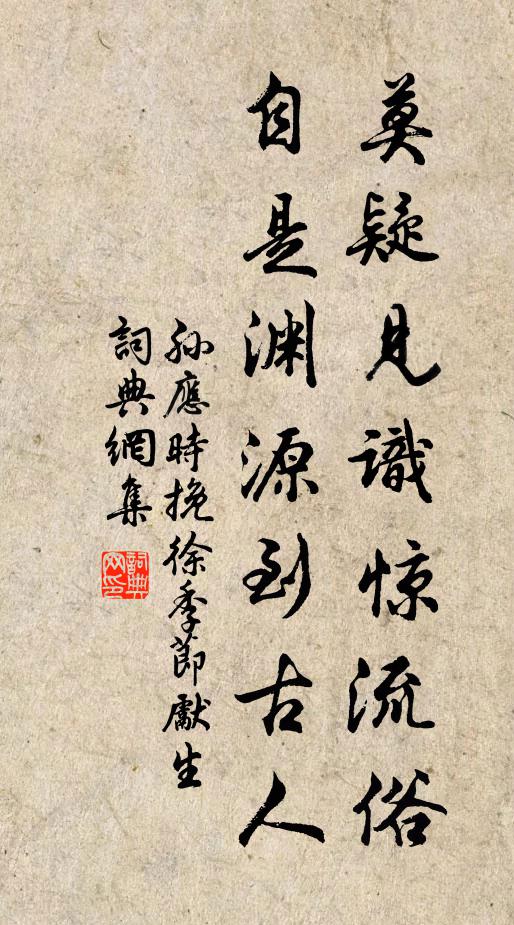 莫疑見識惊流俗
自是渊源到古人
孙應時挽徐季節獻生
詞典網集
詞典网印